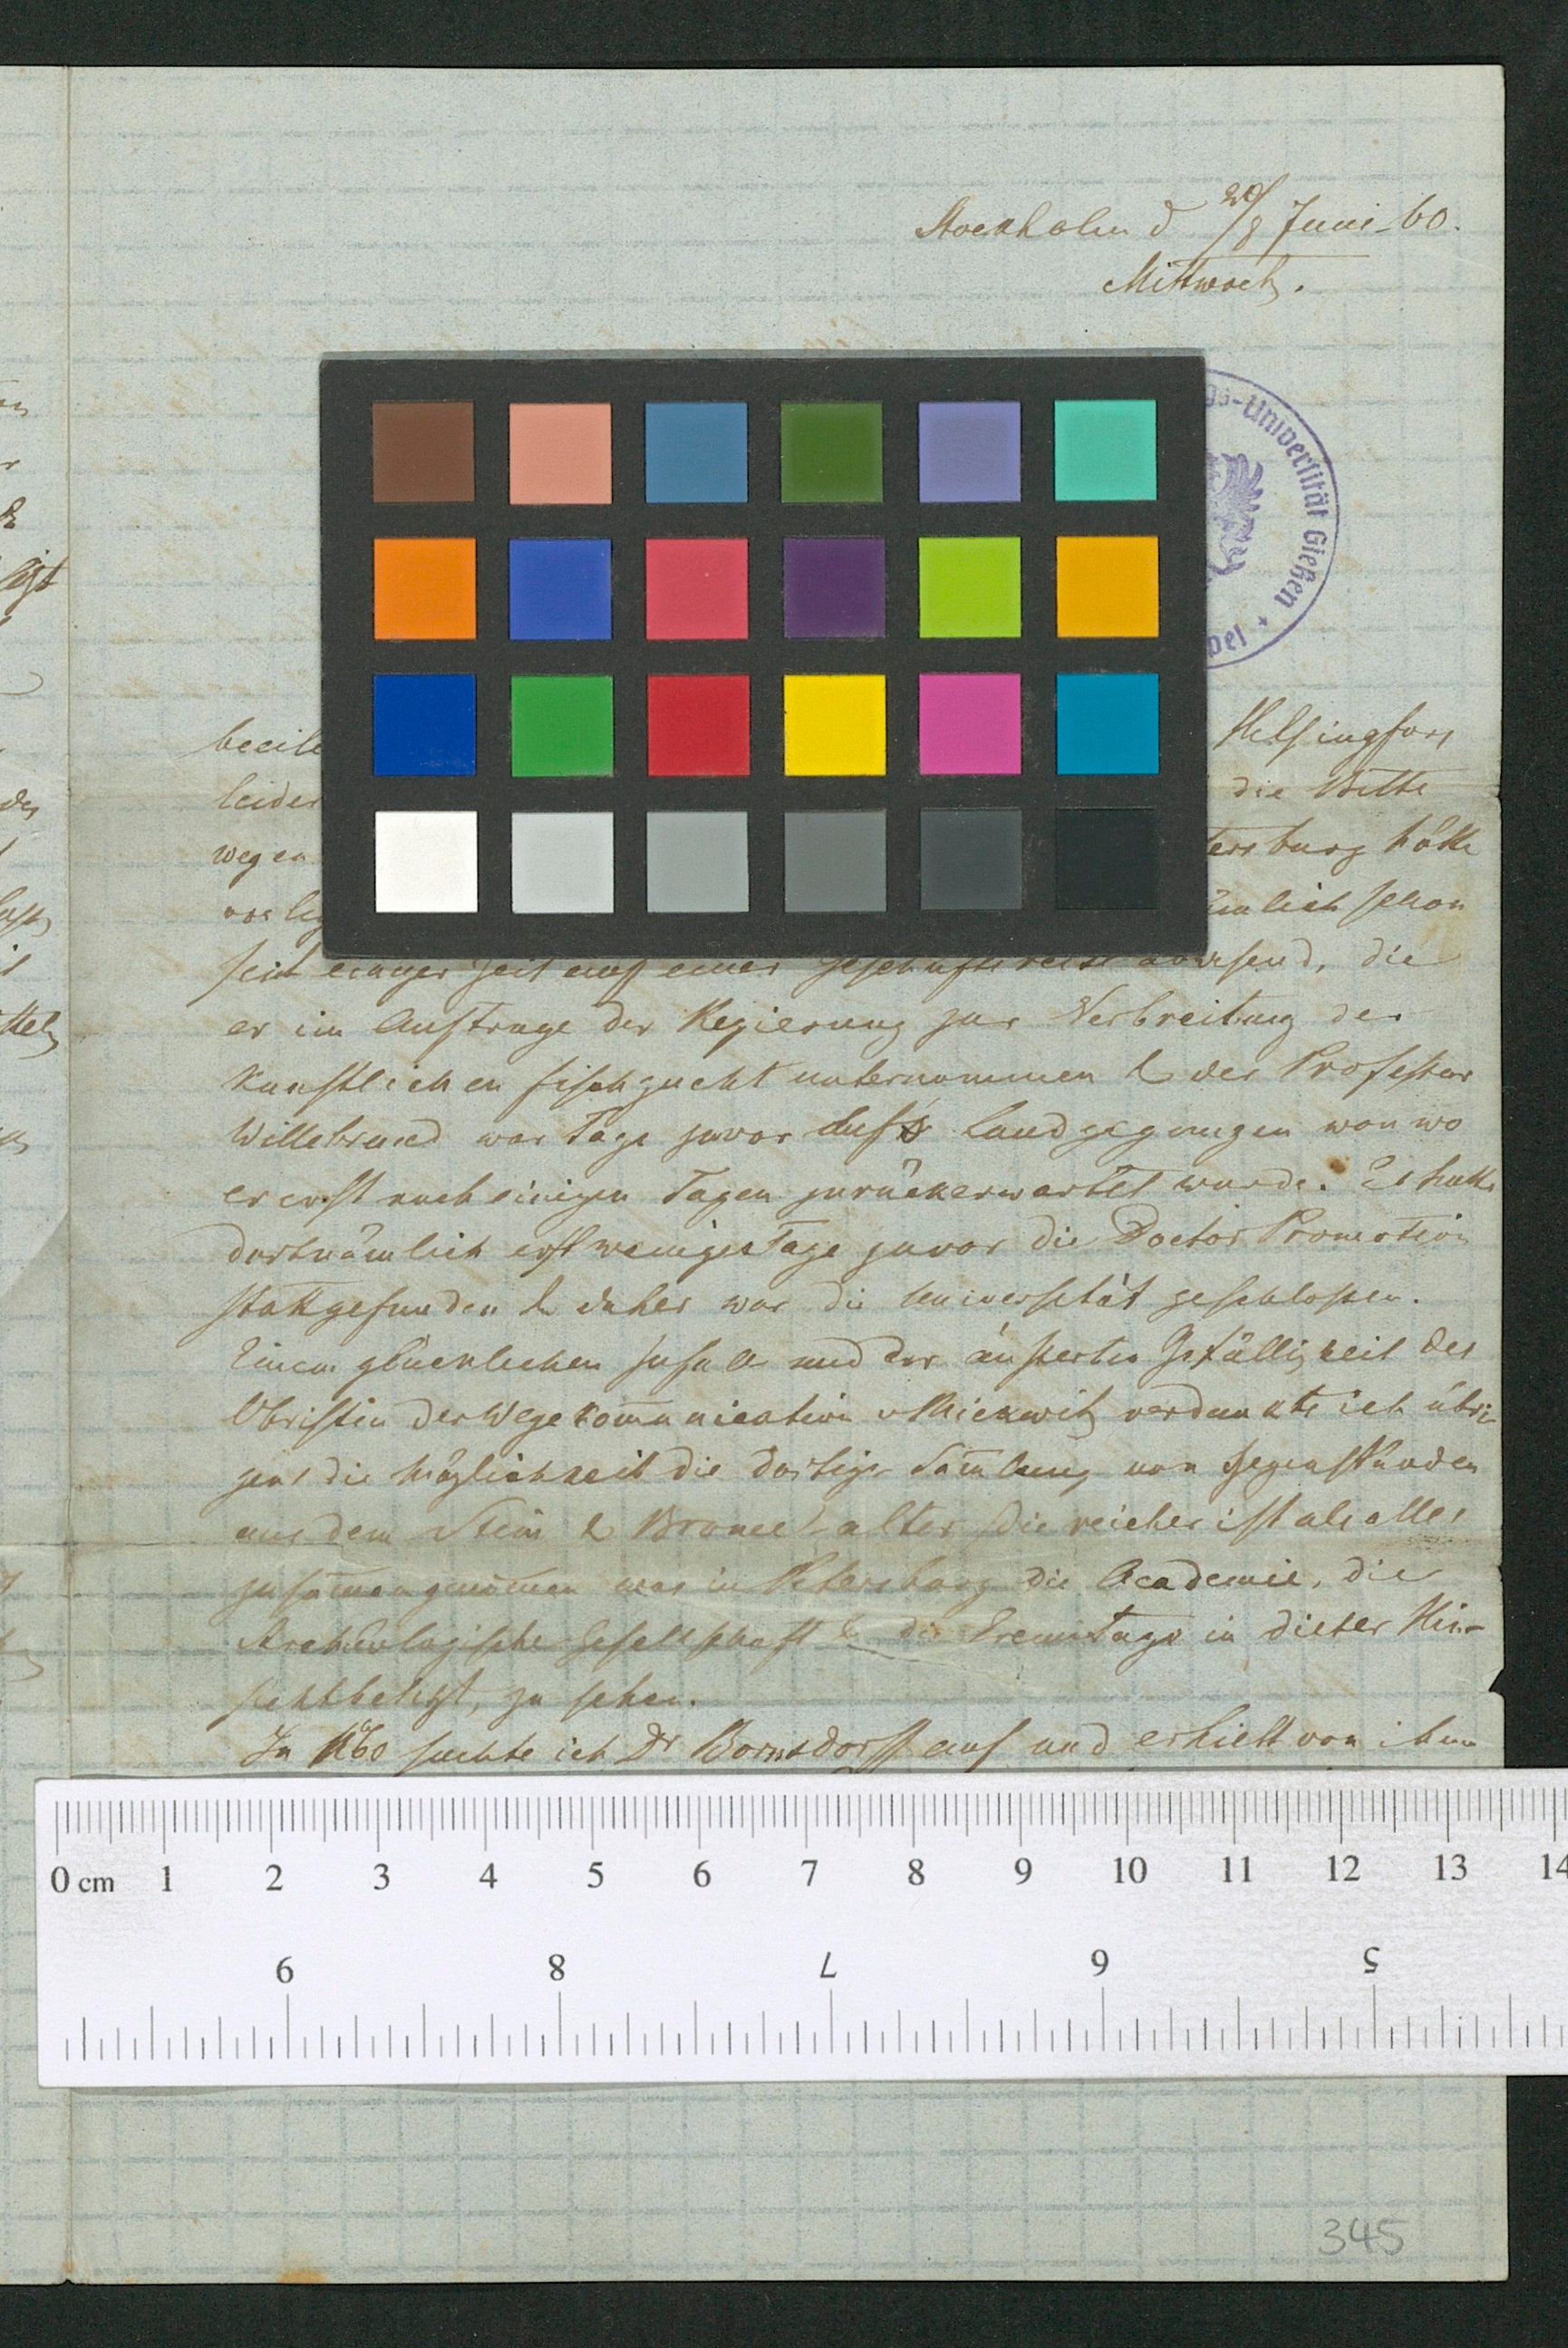 Stockholm d 20/8 Juni 60.
Mittwoch.
gs-Universität Gießen
beeile Helsingfors
leider die Bitte
wegen tersburg hätte
vorleg mlich schon
seit einiger Zeit auf einer Geschäftsreise abwesend, die
er im Auftrage der Regierung zur Verbreitung der
künstlichen Fischzucht unternommen & der Professor
Willebrand war Tags zuvor auf's Land gegangen von wo
er erst nach einigen Tagen zurückerwartet wurde. Es hatte
dort nämlich erst wenige Tage zuvor die Doctor Promotion
stattgefunden & daher war die Universität geschlossen.
Einem glücklichen Zufall und der äußersten Gefälligkeit des
Obristen der Wegekom̄unication v Mickwitz verdankte ich übri-
gens die Möglichkeit die dortige Sam̄lung von Gegenständen
aus dem Stein & Bronce-alter die reicher ist als alles
zusam̄engenom̄en was in Petersburg die Academie, die
Archeologische Gesellschaft & die Eremitage in dieser Hin-
sicht besitzt, zu sehen.
In Åbo suchte ich Dr Bonsdorff auf und erhielt von ihm
0 cm 1 2 3 4 5 6 7 8 9 10 11 12 13 14
9 8 7 6 5
345